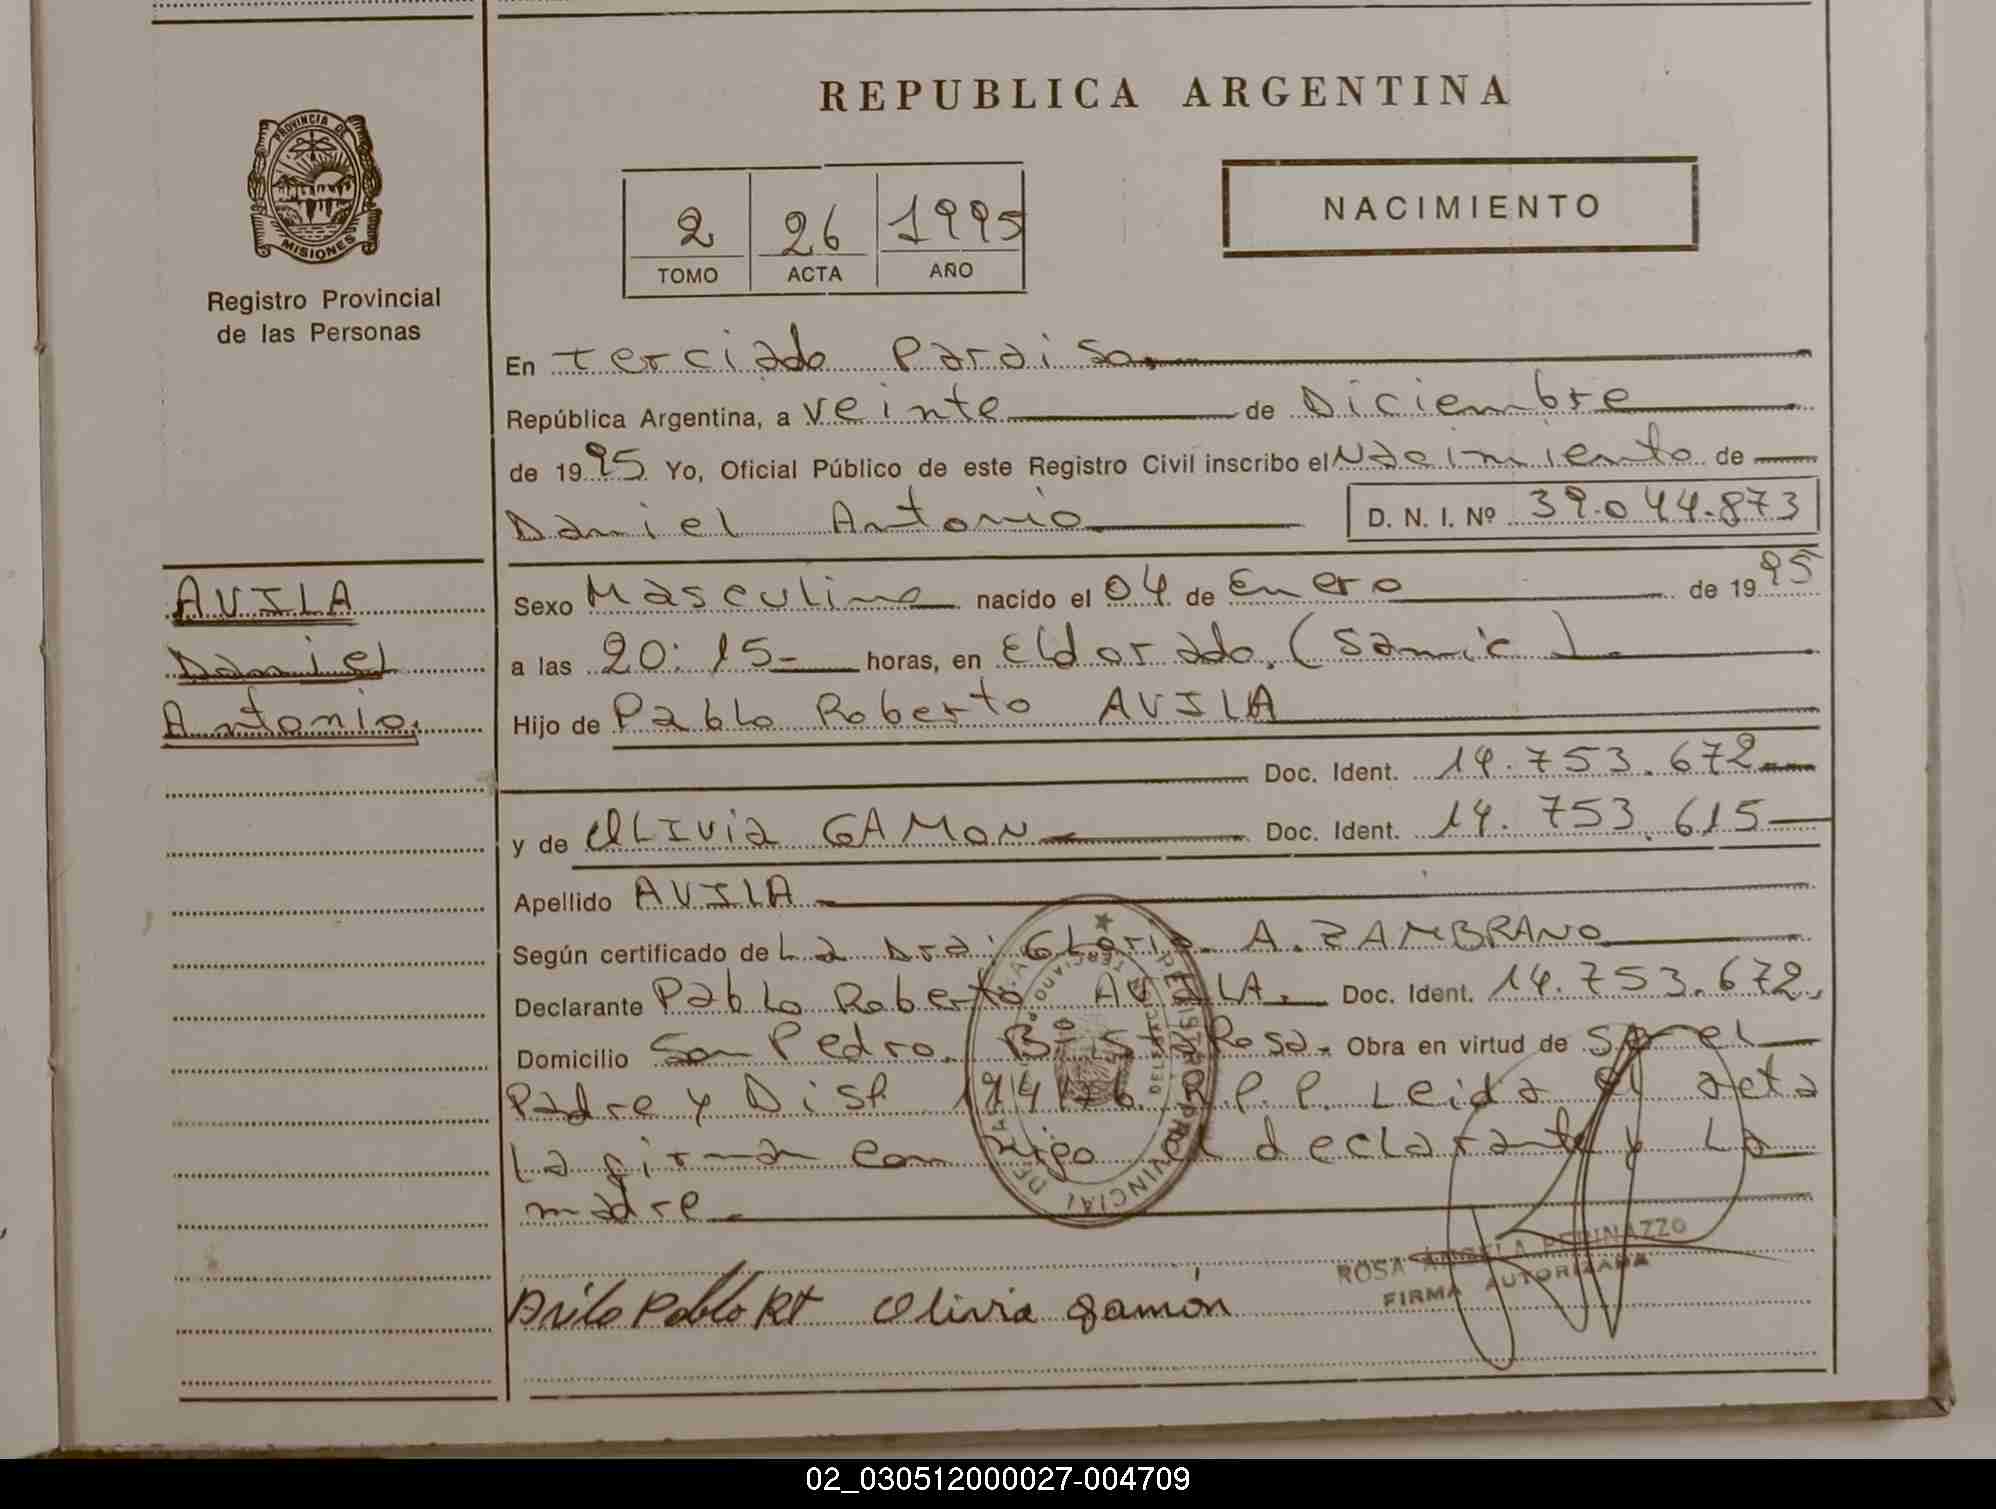 REPUBLICA ARGENTINA
PROVINCIA DE
MISIONES
Registro Provincial
de las Personas
2 26 1995
TOMO ACTA AÑO
NACIMIENTO
En Terciado Paraiso.
República Argentina, a veinte de Diciembre
de 1995 Yo, Oficial Público de este Registro Civil inscribo el Nacimiento de
Daniel Antonio D. N. I. Nº 39.044.873
AVILA
Daniel
Antonio.
Sexo Masculino nacido el 04 de Enero de 1995
a las 20:15- horas, en Eldorado. (Samic).
Hijo de Pablo Roberto AVILA
Doc. Ident. 14.753.672
y de OLIVIA GAMON Doc. Ident. 14.753.615
Apellido AVILA
Según certificado de La Dra: Gloria A. ZAMBRANO
Declarante Pablo Roberto AVILA. Doc. Ident. 14.753.672.
Domicilio San Pedro. Bº Sta Rosa. Obra en virtud de ser el
Padre y Disp. R.P.P. Leida el acta
La firman conmigo el declarante y La
madre.
REGISTRO PROVINCIAL DE LAS
ROSA ANGELA PEDINAZZO
FIRMA AUTORIZADA
Avila Pablo Rt Olivia gamón
02_030512000027-004709